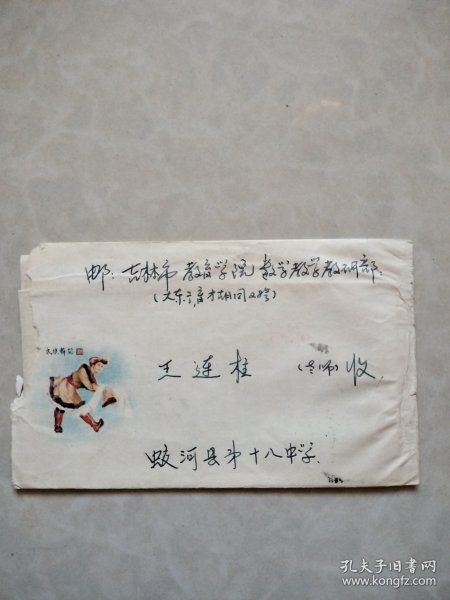 邮: 吉林市教育学院 数学教学教研部:
王连柱 (老师) 收
蛟河县第十八中学.
孔夫子旧书网
www.kongfz.com